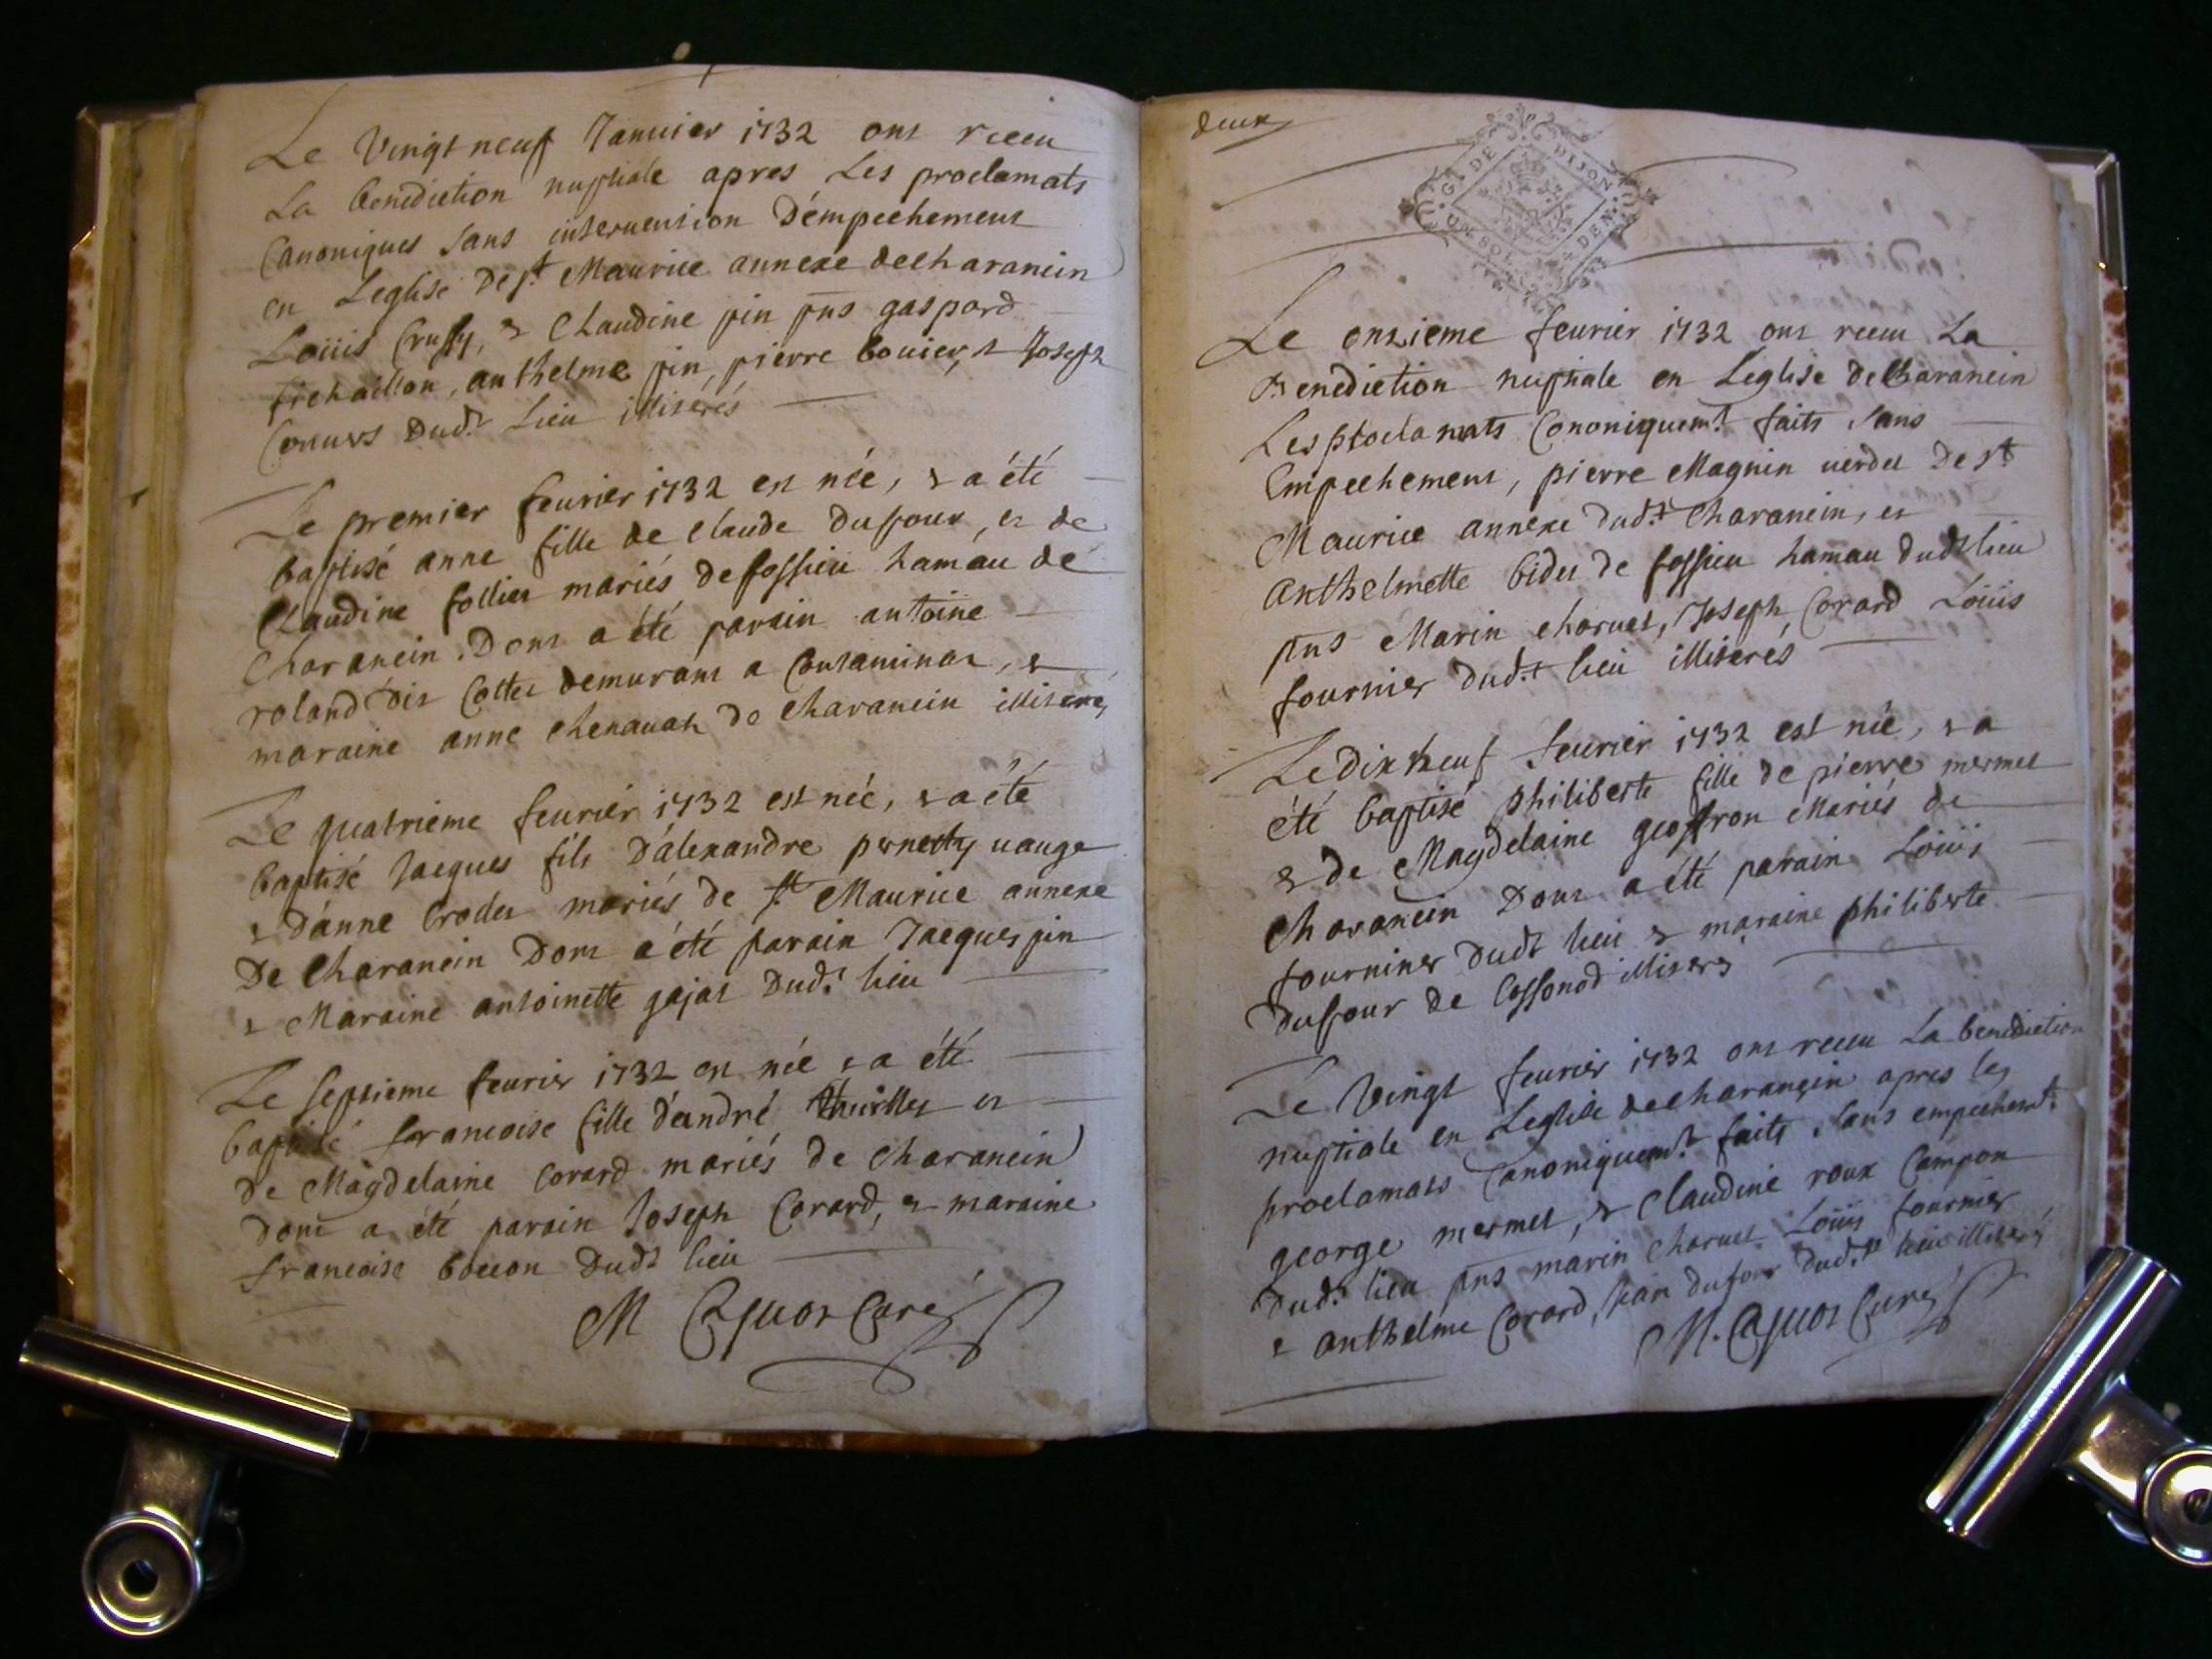 Le Vingt neuf Janvier 1732 ont receu
La benediction nuptiale apres Les proclamats
Canoniques sans intervention Démpechement
en Leglise De st Maurice annexe decharancin
Loüis Crussy, & Claudine pin pns gaspard
anthelme pin, pierre bovier, & Joseph
Dud.t Lieu illiterés
Le premier fevrier 1732 est née, & a été
baptisé anne fille de Claude Dufour, et de
Claudine follier mariés de fossieu hamau de
Charancin. Dont a été parain antoine
roland dit Cottet demurant a Contaminas, &
maraine anne chenavar de Charancin illiterés
Le quatrieme fevrier 1732 est née, & a été
baptisé Jacques fils D'alexandre pernetty vauge
& D'anne brodet mariés de st Maurice annexe
De Charancin Dont a été parain Jacques pin
& Maraine antoinette gajat Dud.t lieu
Le septieme fevrier 1732 est née & a été
baptisé francoise fille d'andré et
de Magdelaine Corard mariés de Charancin
dont a été parain Joseph Corard, & maraine
francoise bocion Dudt lieu
M Caquot Curé
deux
G. DE DIJON
DEN.
Le onzieme fevrier 1732 ont receu La
Benediction nuptiale en Leglise de Charancin
Les proclamats Cononiquem.t faits sans
Empechement, pierre Magnin verdet De st
Maurice annexe dud.t Charancin, et
Anthelmette bidet de fossieu hamau dudt lieu
pns Marin charvet, Joseph Corard Loüis
fournier dud.t lieu illiterés
Le dix neuf fevrier 1732 est née, & a
été baptisé philiberte fille de pierre mermet
& de Magdelaine geoffron Mariés de
Charancin Dont a été parain Loüis
fourninr dudt lieu & maraine philiberte
Dufour de Cossonod illiterés
Le Vingt fevrier 1732 ont receu La benediction
nuptiale en Leglise decharancin apres les
proclamats Canoniquem.t faits sans empechemt.
george mermet, & Claudine roux Campon
Dud.t lieu pns marin Charvet Loüis fournier
& anthelme Corard, Jean dufour dud.t lieu illiterés
M. Caquot Curé